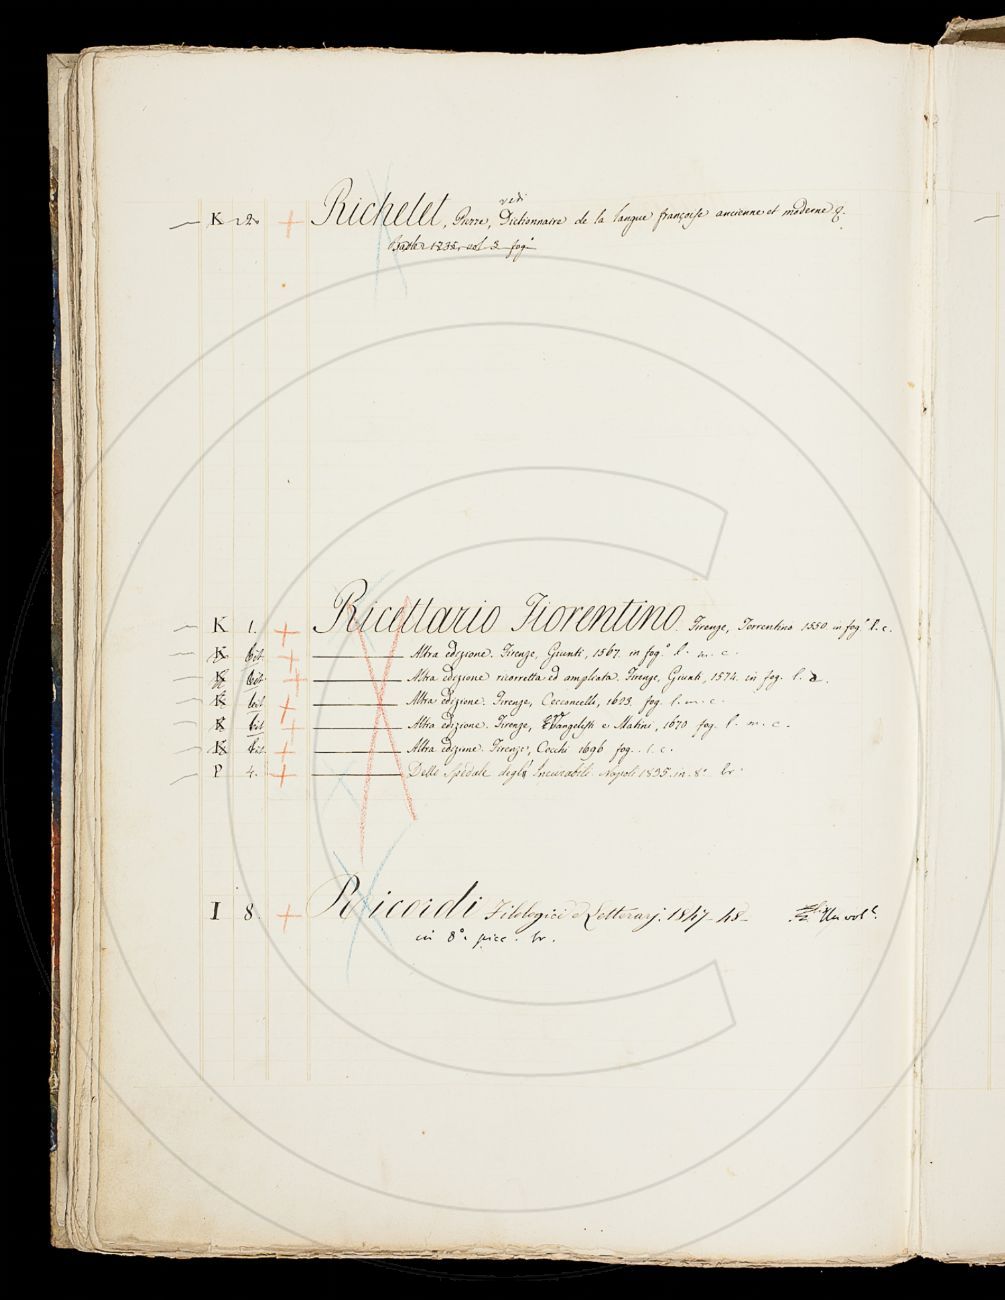 vedi
K 2. Richelet, Pierre, Dictionnaire de la langue françoise ancienne et moderne &.
1735, vol 3 fog.°
K 1. Ricettario Fiorentino. Firenze, Torrentino 1550. in fog.° l. c.
K Altra edizione. Firenze, Giunti, 1567. in fog.° l. m. c.
K Altra edizione ricorretta ed ampliata. Firenze, Giunti, 1574. in fog. l.
K Altra edizione. Firenze, Cecconcelli, 1623. fog. l. m. c.
K Altra edizione. Firenze, Vangelisti e Matini, 1670 fog. l. m. c.
K Altra edizione. Firenze, Cecchi 1696 fog. l. c.
P 4. Dello Spedale degli Incurabili. Napoli 1835. in. 8.° br.
I 8 Ricordi Filologici e Letterarj. 1847-48 Un vol.
in 8.° picc. br.